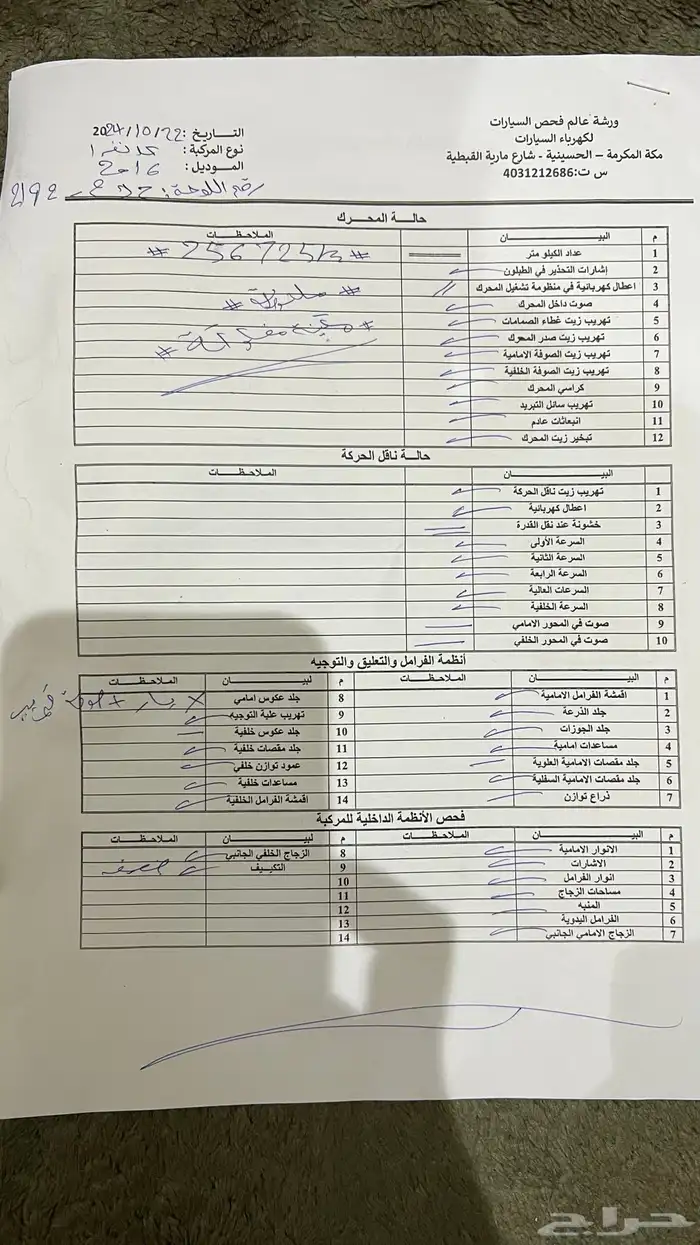 ورشة عالم فحص السيارات
لكهرباء السيارات
مكة المكرمة – الحسينية - شارع مارية القبطية
س ت:4031212686
التـــاريــخ :2024/10/22
نوع المركبة:
الموديل: 2016
رقم اللوحة: 2192
حالـــة المحـــرك
م البيــــــــان الملاحظـــات
1 عداد الكيلو متر # 256725 #
2 إشارات التحذير في الطبلون
3 اعطال كهربائية في منظومة تشغيل المحرك
4 صوت داخل المحرك
5 تهريب زيت غطاء الصمامات
6 تهريب زيت صدر المحرك
7 تهريب زيت الصوفة الامامية
8 تهريب زيت الصوفة الخلفية
9 كراسي المحرك
10 تهريب سائل التبريد
11 انبعاثات عادم
12 تبخير زيت المحرك
حالـــة ناقل الحركة
البيــــــــان الملاحظـــات
1 تهريب زيت ناقل الحركة
2 اعطال كهربائية
3 خشونة عند نقل القدرة
4 السرعة الأولى
5 السرعة الثانية
6 السرعة الرابعة
7 السرعات العالية
8 السرعة الخلفية
9 صوت في المحور الامامي
10 صوت في المحور الخلفي
أنظمة الفرامل والتعليق والتوجيه
م البيــــــــان الملاحظـــات م لبيــــــــان الملاحظـــات
1 اقمشة الفرامل الامامية 8 جلد عكوس امامي
2 جلد الذرعة 9 تهريب علبة التوجيه
3 جلد الجوزات 10 جلد عكوس خلفية
4 مساعدات امامية 11 جلد مقصات خلفية
5 جلد مقصات الامامية العلوية 12 عمود توازن خلفي
6 جلد مقصات الامامية السفلية 13 مساعدات خلفية
7 ذراع توازن 14 اقمشة الفرامل الخلفية
فحص الأنظمة الداخلية للمركبة
م البيــــــــان الملاحظـــات م لبيــــــــان الملاحظـــات
1 الانوار الامامية 8 الزجاج الخلفي الجانبي
2 الاشارات 9 التكييف
3 انوار الفرامل 10
4 مساحات الزجاج 11
5 المنبه 12
6 الفرامل اليدوية 13
7 الزجاج الامامي الجانبي 14
حراج